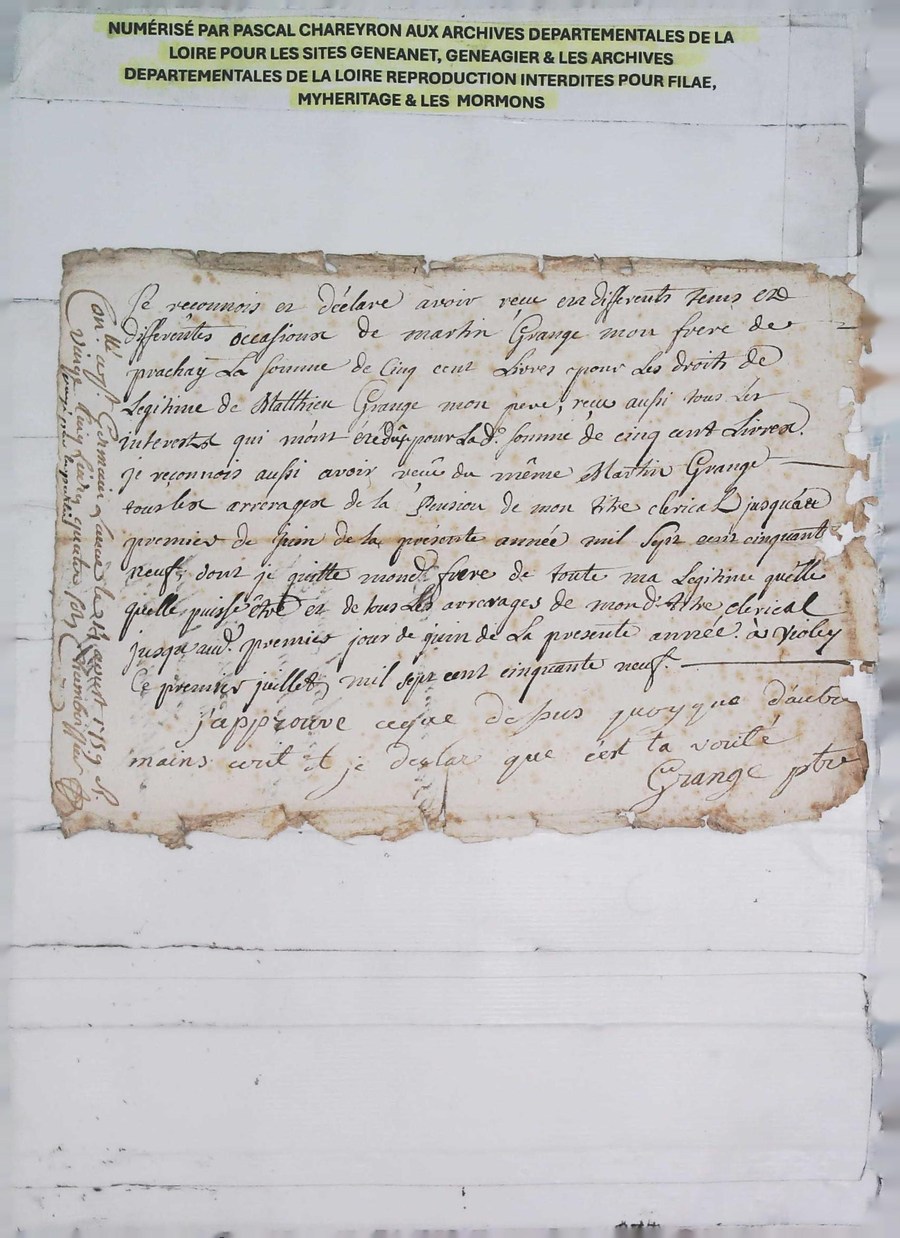 NUMÉRISÉ PAR PASCAL CHAREYRON AUX ARCHIVES DEPARTEMENTALES DE LA
LOIRE POUR LES SITES GENEANET, GENEAGIER & LES ARCHIVES
DEPARTEMENTALES DE LA LOIRE REPRODUCTION INTERDITES POUR FILAE,
MYHERITAGE & LES MORMONS
Je reconnois et déclare avoir reçu en differents tems et
differentes occasions de martin Grange mon frere de
prachay La somme de Cinq cent Livres pour Les droits de
Legitime de Matthieu Grange mon pere, reçu aussi tous Les
interests qui m'ont été dûs pour La de. somme de cinq cent Livres.
je reconnois aussi avoir reçu du même Martin Grange
tous les arrerages de la Pension de mon titre clerical jusqu'au
premier de juin de la présente année mil sept cent cinquant
neuf, dont je quitte mond. frere de toute ma Legitime quelle
quelle puisse être et de tous Les arrerages de mond. titre clerical
jusqu'aud. premier jour de juin de La presente année. à Violey
Ce premier juillet mil sept cent cinquante neuf.
j'approuve ceque dessus quoyque d'autre
mains ecrit et je declar que c'est la verité
Grange ptre
Con.llé à St Germain Laval le août 1759 R
vingt cinq Livres quatre sols